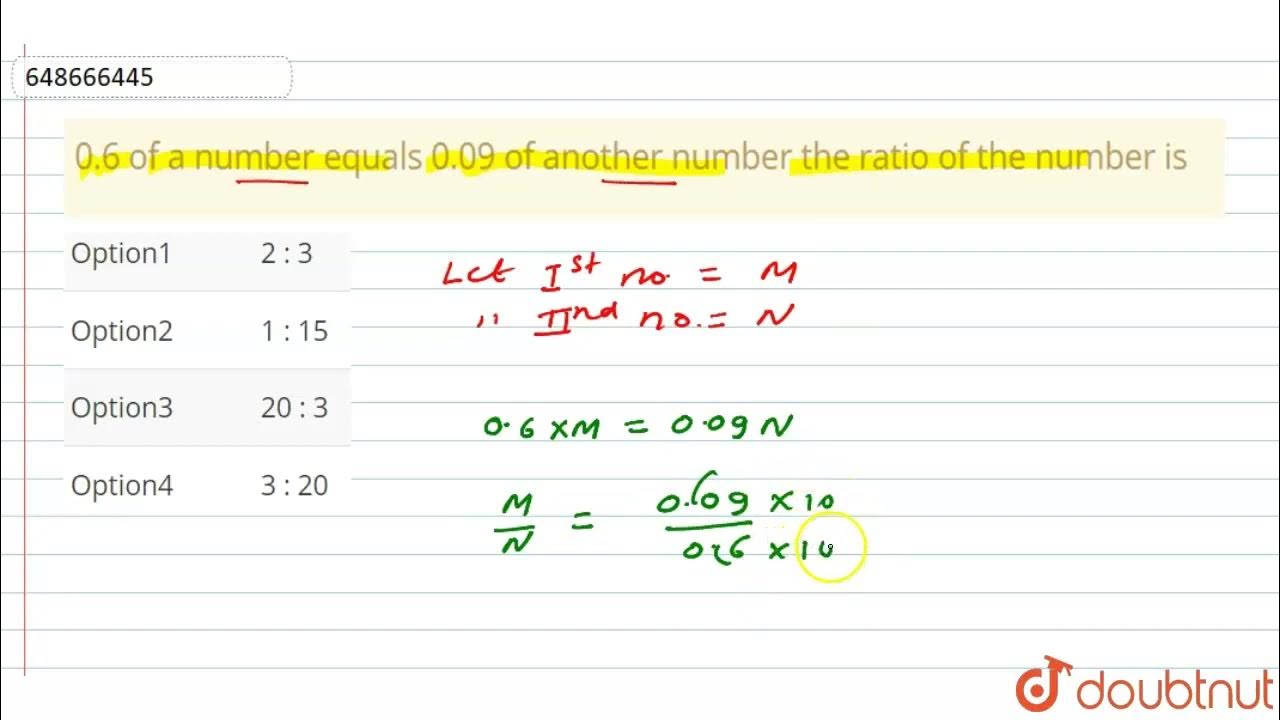 648666445
0.6 of a number equals 0.09 of another number the ratio of the number is
Option1 2 : 3
Option2 1 : 15
Option3 20 : 3
Option4 3 : 20
Let Ist no. = M
,, IInd no. = N
0.6 x M = 0.09 N
M/N = 0.09 x 10 / 0.6 x 10
doubtnut